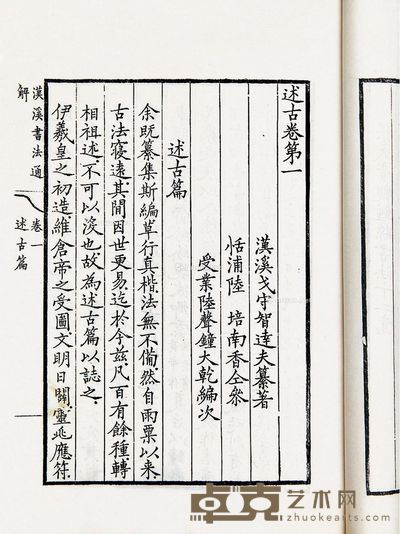 述古卷第一
漢溪戈守智達夫纂著
恬浦陸 培南香仝參
受業陸聲鐘大乾編次
述古篇
余既纂集斯編草行真楷法無不備然自雨粟以来
古法寖遠其間因世更易迄於今兹凡百有餘種轉
相祖述不可以没也故為述古篇以誌之
伊羲皇之初造維倉帝之受圖文明日闢靈兆應符
漢溪書法通解 卷一 述古篇
卓克艺术网
zhuokearts.com